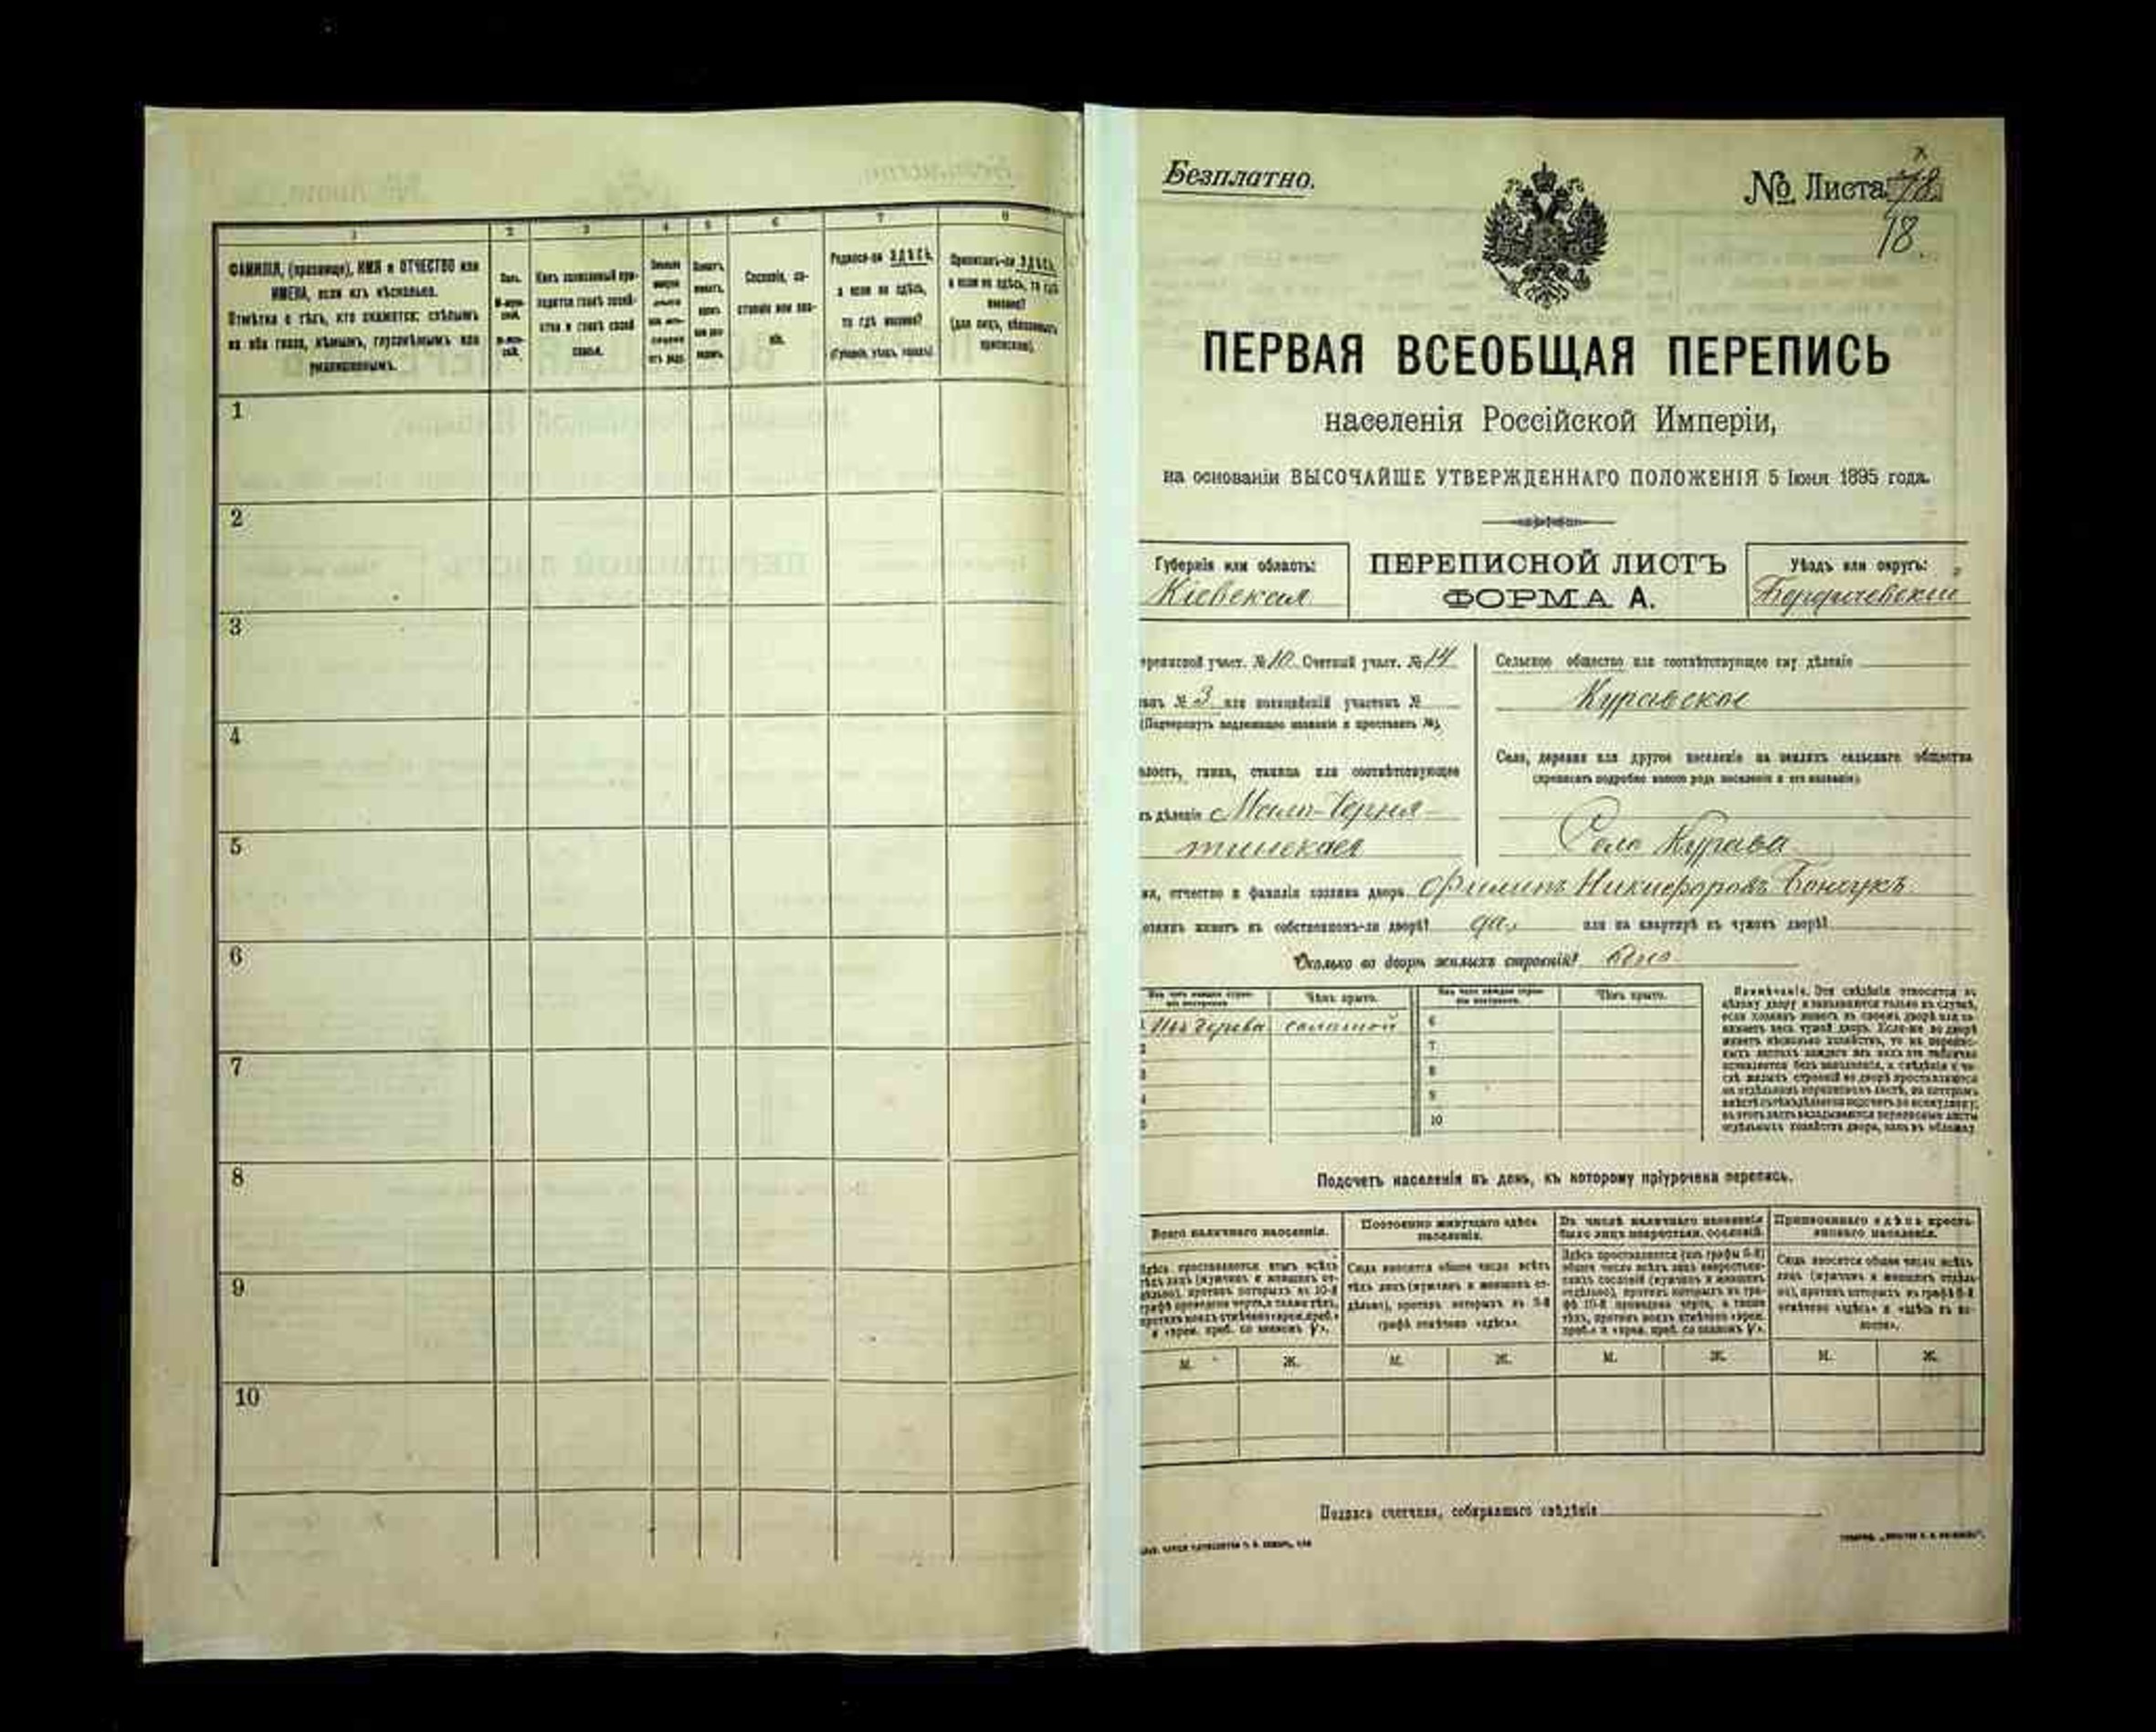 1 2 3 4 5 6 7 8
ФАМИЛІЯ, (прозвище), ИМЯ и ОТЧЕСТВО или
ИМЕНА, если ихъ нѣсколько.
Отмѣтка о тѣхъ, кто окажется: слѣпымъ
на оба глаза, нѣмымъ, глухонѣмымъ или
умалишеннымъ.
Полъ.
Какъ записанный при-
ходится главѣ хозяй-
ства и главѣ своей
семьи.
Сословіе, со-
стояніе или зва-
ніе.
Родился-ли ЗДѢСЬ,
а если не здѣсь,
то гдѣ именно?
(Губернія, уѣздъ, городъ)
Приписанъ-ли ЗДѢСЬ,
а если не здѣсь, то гдѣ
именно?
(для лицъ, обязанныхъ
припискою).
1
2
3
4
5
6
7
8
9
10
Безплатно.
№ Листа 78
18
ПЕРВАЯ ВСЕОБЩАЯ ПЕРЕПИСЬ
населенія Россійской Имперіи,
на основаніи ВЫСОЧАЙШЕ УТВЕРЖДЕННАГО ПОЛОЖЕНІЯ 5 Іюня 1895 года.
Губернія или область:
Кіевская
ПЕРЕПИСНОЙ ЛИСТЪ
ФОРМА А.
Уѣздъ или округъ:
Бердичевскій
реписной участ. № 10 Счетный участ. № 14
анъ № 3 или полицейскій участокъ №
(Подчеркнуть надлежащее названіе и проставить №).
лость, гмина, станица или соотвѣтствующее
ъ дѣленіе Мало-Черня-
тинская
Сельское общество или соотвѣтствующее ему дѣленіе
Куравское
Село, деревня или другое поселеніе на земляхъ сельскаго общества
(прописать подробно какого рода поселеніе и его названіе).
Село Курава
мя, отчество и фамилія хозяина двора Филиппъ Никифоровъ Бондукъ
озяинъ живетъ въ собственномъ-ли дворѣ? да, или на квартирѣ въ чужомъ дворѣ?
Сколько во дворѣ жилыхъ строеній? одно
Изъ чего каждое строе-
ніе построено.
Чѣмъ крыто.
Изъ чего каждое строе-
ніе построено.
Чѣмъ крыто.
1 Изъ дерева соломой 6
2 7
3 8
4 9
5 10
Примѣчаніе. Эти свѣдѣнія относятся къ
цѣлому двору и заполняются только въ случаѣ,
если хозяинъ живетъ въ своемъ дворѣ или за-
нимаетъ весь чужой дворъ. Если-же во дворѣ
живетъ нѣсколько хозяйствъ, то на перепис-
ныхъ листахъ каждаго изъ нихъ эта табличка
оставляется безъ заполненія, а свѣдѣнія о чи-
слѣ жилыхъ строеній во дворѣ проставляются
на отдѣльномъ переписномъ листѣ, на которомъ
Подсчетъ населенія въ день, къ которому пріурочена перепись.
Всего наличнаго населенія.
Постоянно живущаго здѣсь
населенія.
Въ числѣ наличнаго населенія
было лицъ некрестьян. сословій.
Приписаннаго здѣсь кресть-
янскаго населенія.
Здѣсь проставляется итогъ всѣхъ
тѣхъ лицъ (мужчинъ и женщинъ от-
дѣльно), противъ которыхъ въ 10-й
графѣ проведена черта, а также тѣхъ,
противъ коихъ отмѣчено «врем. преб.»
Сюда вносится общее число всѣхъ
тѣхъ лицъ (мужчинъ и женщинъ от-
дѣльно), противъ которыхъ въ 9-й
графѣ отмѣчено «здѣсь».
Здѣсь проставляется (изъ графы 6-й)
общее число всѣхъ лицъ некрестьян-
скихъ сословій (мужчинъ и женщинъ
отдѣльно), противъ которыхъ въ гра-
фѣ 10-й проведена черта, а также
тѣхъ, противъ коихъ отмѣчено «врем.
Сюда вносится общее число всѣхъ
лицъ (мужчинъ и женщинъ отдѣль-
но), противъ которыхъ въ графѣ 8-й
отмѣчено «здѣсь» и «здѣсь въ во-
лости».
М. Ж. М. Ж. М. Ж. М. Ж.
Подпись счетчика, собиравшаго свѣдѣнія